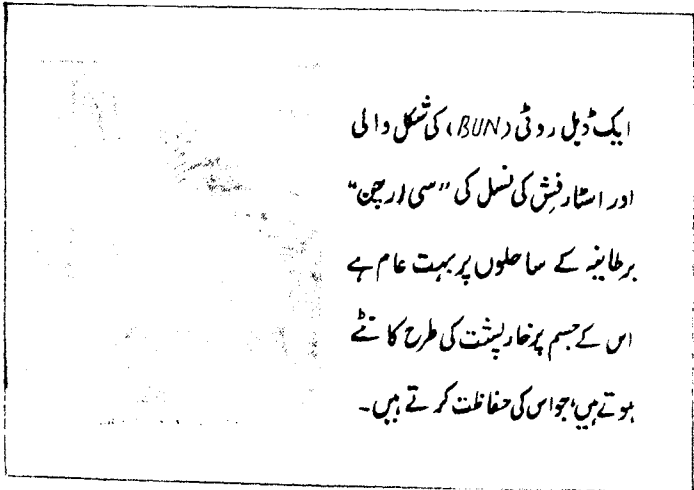 ایک ڈبل روٹی (BUN) کی شکل والی
اور اسٹارفِش کی نسل کی "سی ارچن"
برطانیہ کے ساحلوں پر بہت عام ہے
اس کے جسم پر خارپشت کی طرح کانٹے
ہوتے ہیں، جو اس کی حفاظت کرتے ہیں۔